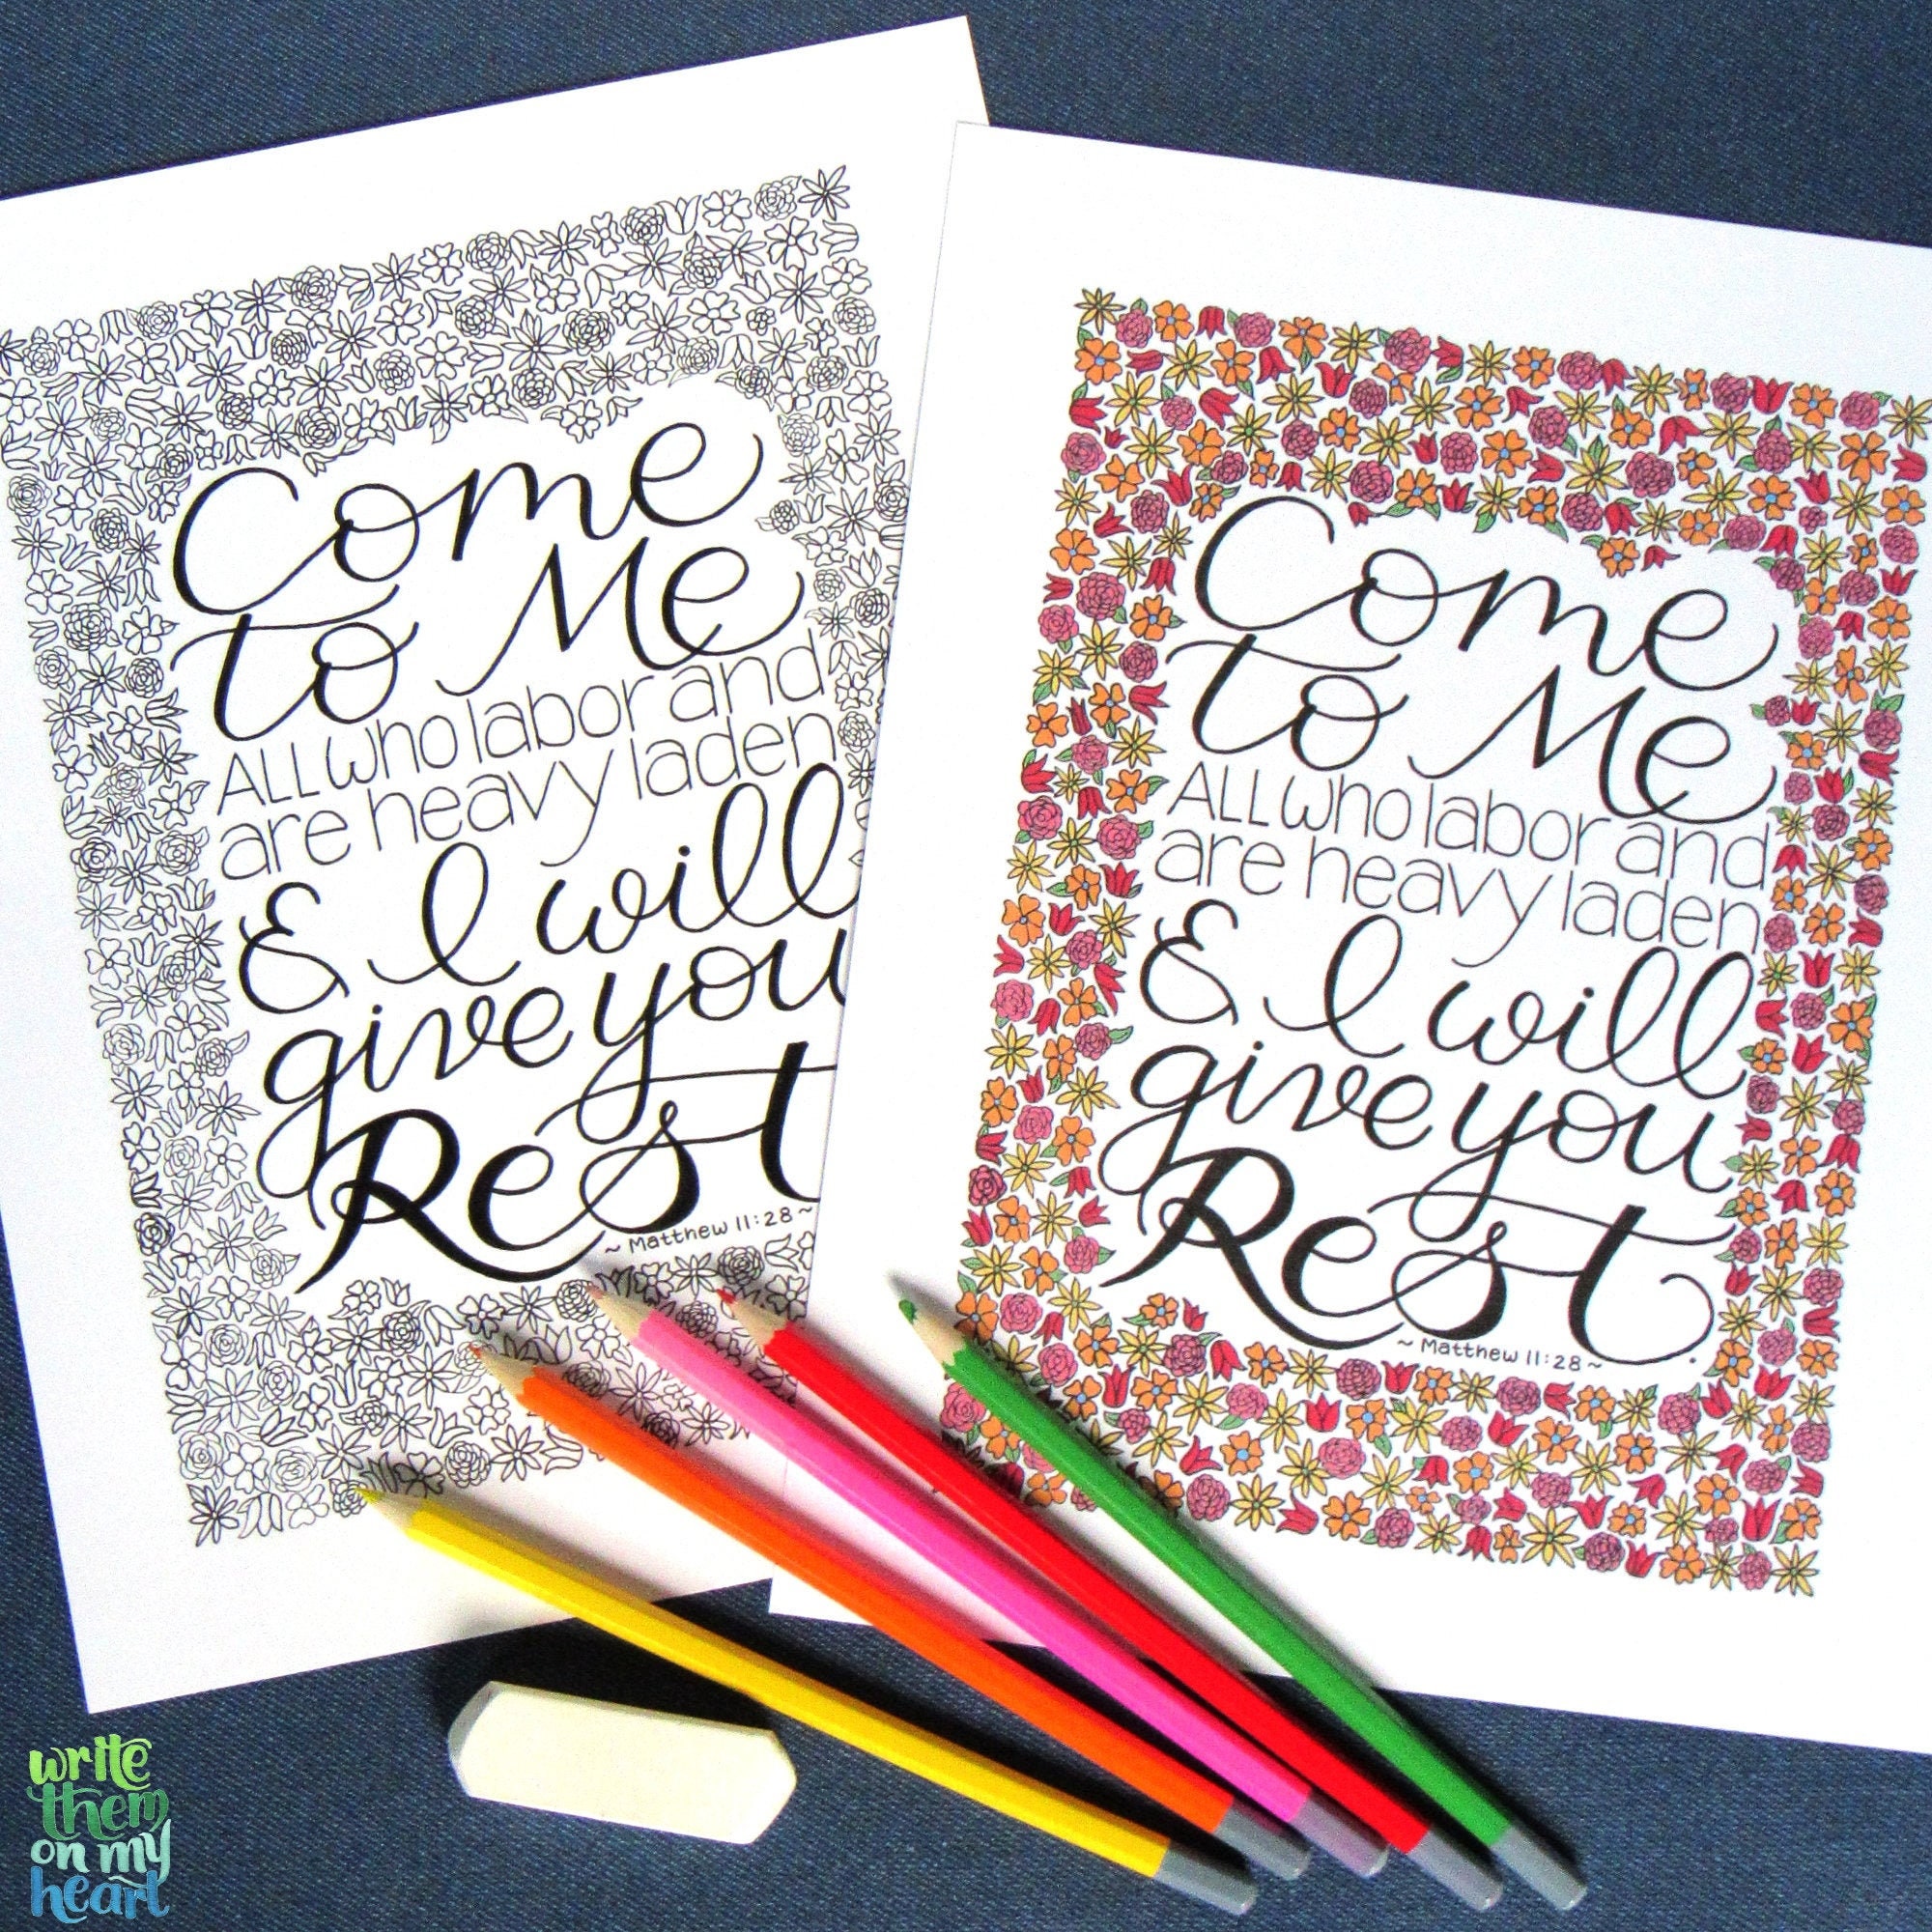 Come
to Me
ALL who labor and
are heavy laden
& I will
give you
Rest
~ Matthew 11:28 ~
Come
to Me
ALL who labor and
are heavy laden
& I will
give you
Rest.
~ Matthew 11:28 ~
write
them
on my
heart